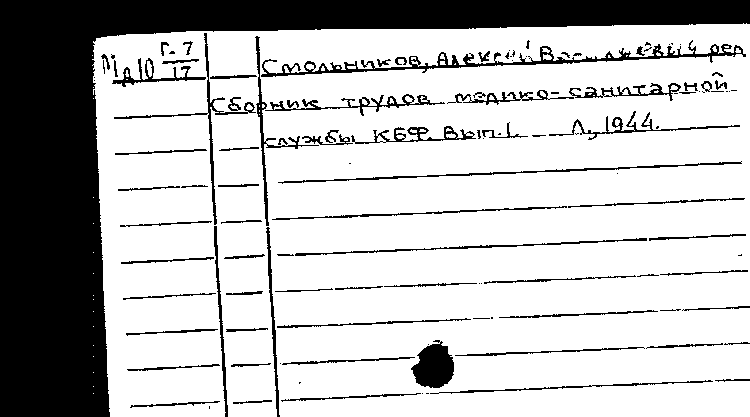 М1д10 Г-7/17 Смольников, Алексей Васильевич ред
Сборник трудов медико-санитарной
службы КБФ. Вып.1. Л., 1944.